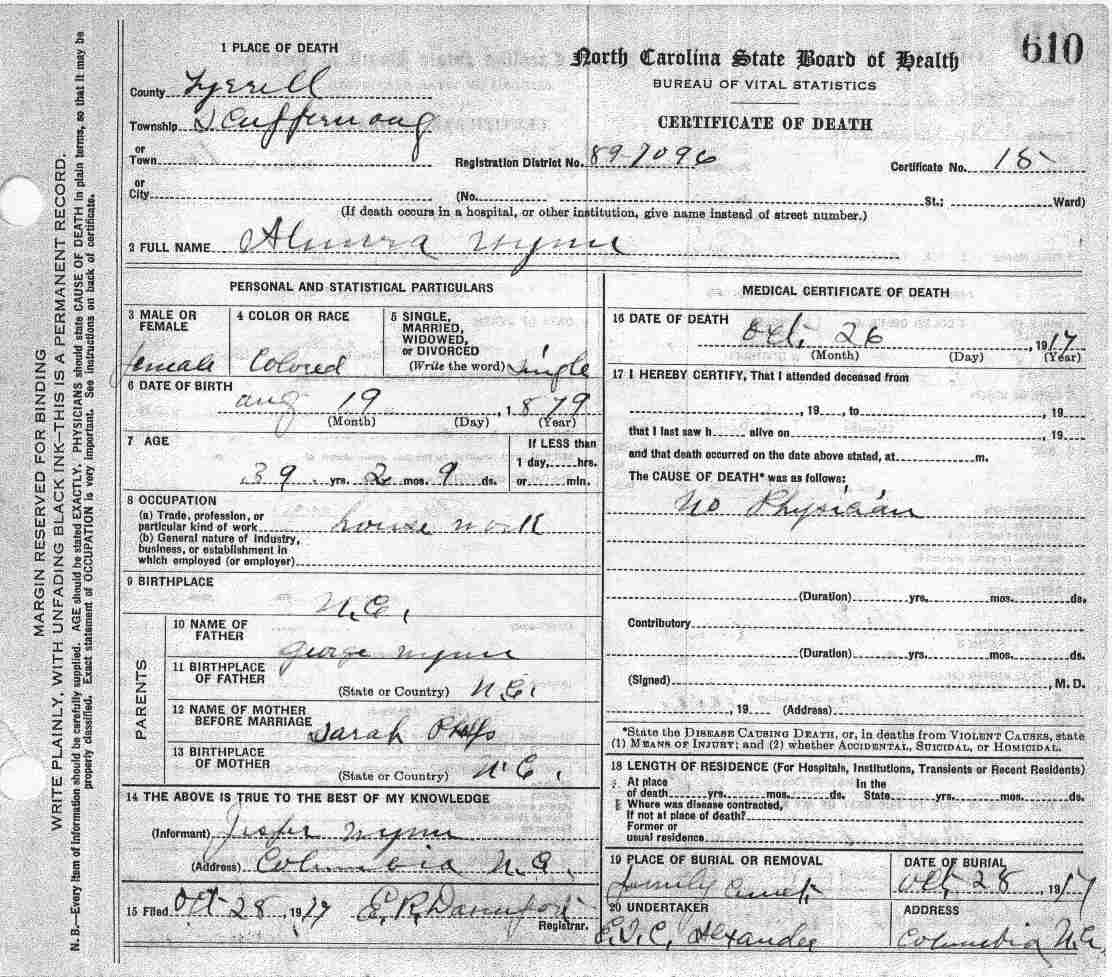 MARGIN RESERVED FOR BINDING
WRITE PLAINLY, WITH UNFADING BLACK INK—THIS IS A PERMANENT RECORD.
N. B.—Every item of information should be carefully supplied. AGE should be stated EXACTLY. PHYSICIANS should state CAUSE OF DEATH in plain terms, so that it may be
properly classified. Exact statement of OCCUPATION is very important. See instructions on back of certificate.
610
1 PLACE OF DEATH
County Tyrrell
Township Scuppernong
or
Town
or
City
North Carolina State Board of Health
BUREAU OF VITAL STATISTICS
CERTIFICATE OF DEATH
Registration District No. 89-7096 Certificate No. 15
(No. St.; Ward)
(If death occurs in a hospital, or other institution, give name instead of street number.)
2 FULL NAME Wynn
PERSONAL AND STATISTICAL PARTICULARS
3 MALE OR FEMALE female
4 COLOR OR RACE Colored
5 SINGLE, MARRIED, WIDOWED, or DIVORCED (Write the word) single
6 DATE OF BIRTH
aug 19, 1879
(Month) (Day) (Year)
7 AGE
39 yrs. 2 mos. 9 ds.
If LESS than
1 day, hrs.
or min.
8 OCCUPATION
(a) Trade, profession, or
particular kind of work house work
(b) General nature of industry,
business, or establishment in
which employed (or employer)
9 BIRTHPLACE
N.C.
PARENTS
10 NAME OF FATHER George Wynn
11 BIRTHPLACE OF FATHER
(State or Country) N.C.
12 NAME OF MOTHER BEFORE MARRIAGE Sarah
13 BIRTHPLACE OF MOTHER
(State or Country) N.C.
14 THE ABOVE IS TRUE TO THE BEST OF MY KNOWLEDGE
(Informant) Wynn
(Address) Columbia N.C.
15 Filed Oct 28, 19 E. R. Davenport
Registrar.
MEDICAL CERTIFICATE OF DEATH
16 DATE OF DEATH Oct. 26 1917
(Month) (Day) (Year)
17 I HEREBY CERTIFY, That I attended deceased from
, 19 , to , 19
that I last saw h alive on , 19
and that death occurred on the date above stated, at m.
The CAUSE OF DEATH* was as follows:
No Physician
(Duration) yrs. mos. ds.
Contributory
(Duration) yrs. mos. ds.
(Signed) , M. D.
, 19 (Address)
*State the DISEASE CAUSING DEATH, or, in deaths from VIOLENT CAUSES, state
(1) MEANS OF INJURY; and (2) whether ACCIDENTAL, SUICIDAL, OR HOMICIDAL.
18 LENGTH OF RESIDENCE (For Hospitals, Institutions, Transients or Recent Residents)
At place In the
of death yrs. mos. ds. State yrs. mos. ds.
Where was disease contracted,
If not at place of death?
Former or
usual residence
19 PLACE OF BURIAL OR REMOVAL
family
DATE OF BURIAL
Oct 28, 1917
20 UNDERTAKER
Alexander
ADDRESS
Columbia N.C.